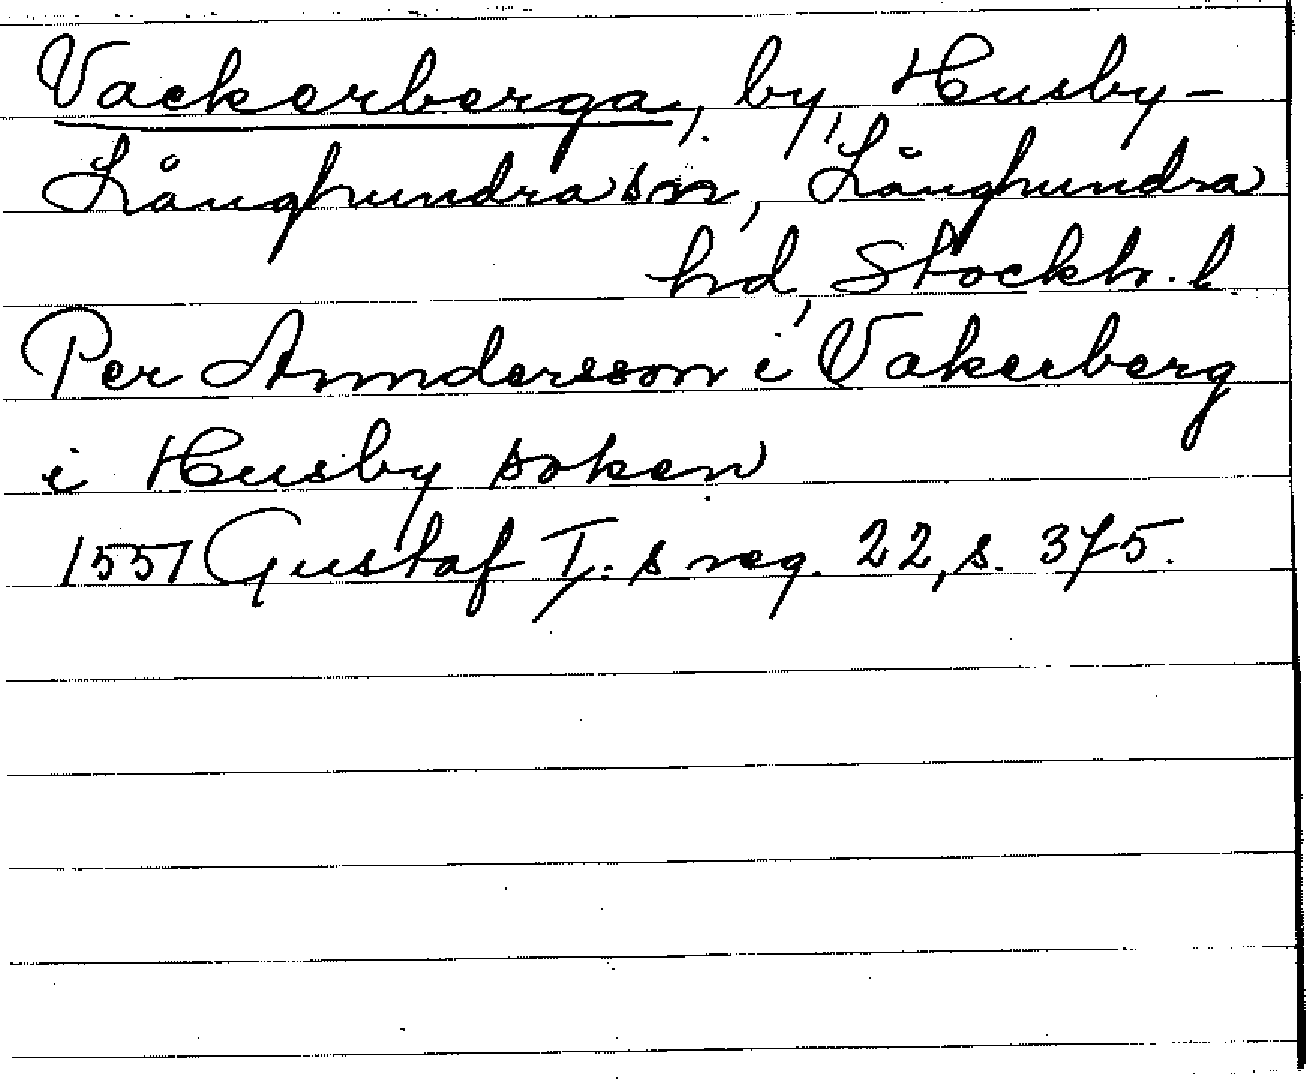 Vackerberga, by, Husby-
Långhundra sn, Långhundra
hd, Stockh. l.
Per Anndersson i Vakerberg
i Husby soken
1551 Gustaf I:s reg. 22, s. 375.